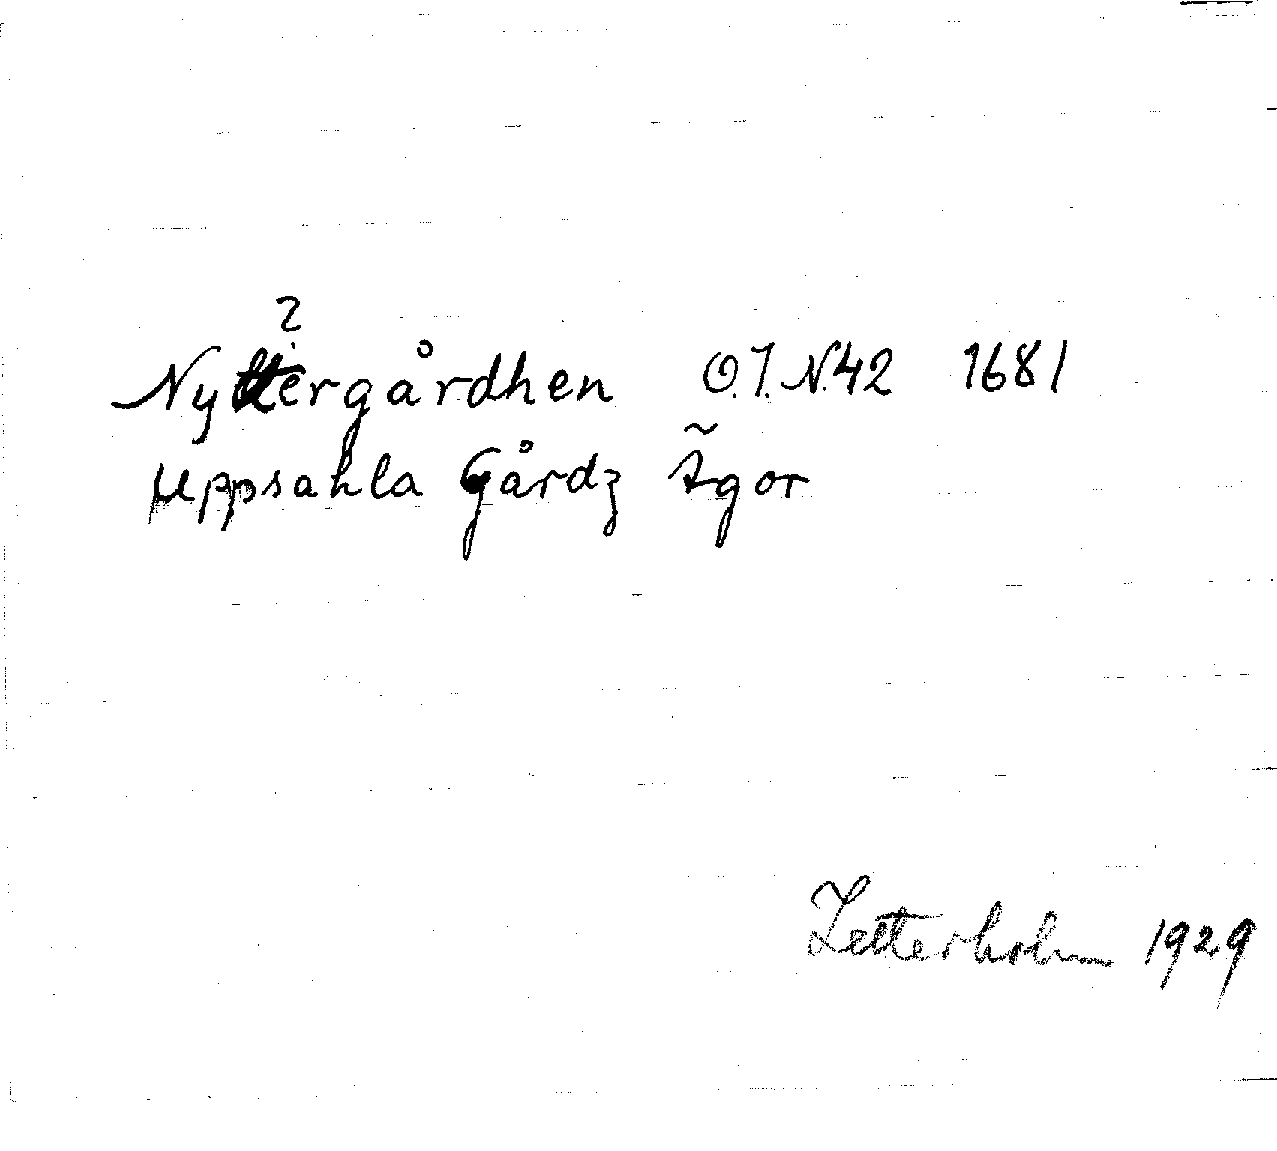 ?
Nyttergårdhen O.J. N.42 1681
Uppsahla Gårdz Ãgor
Zetterholm 1929